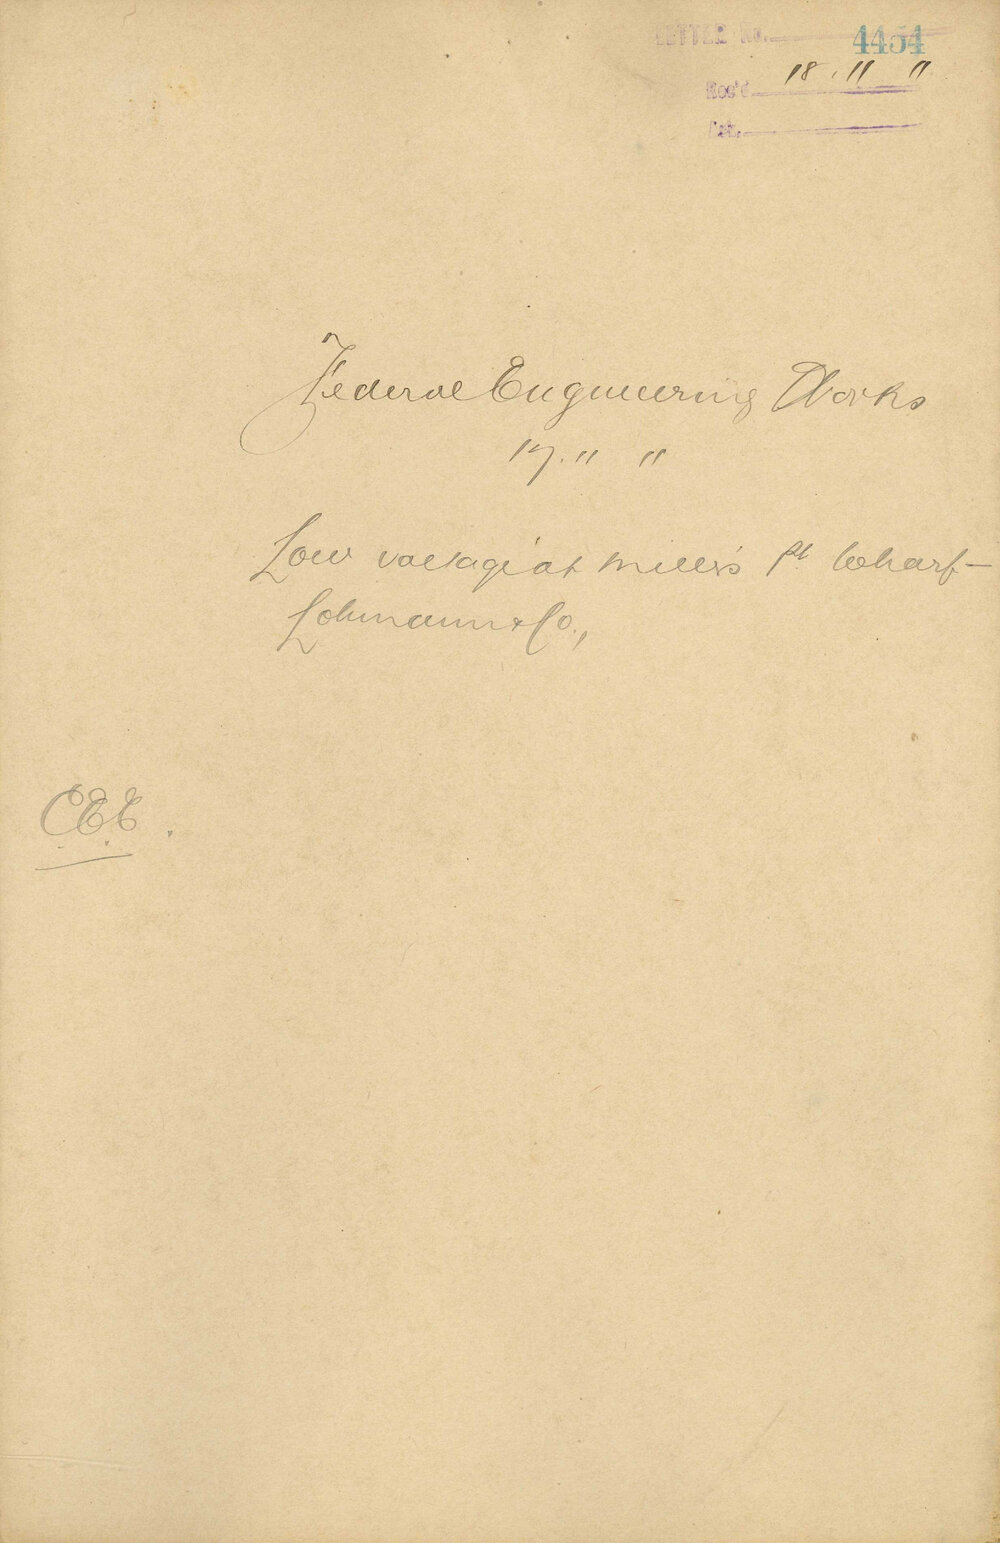 LETTER No. 4454
Rec'd 18.11 11
Federal Engineering Works
17. " "
Low voltage at Miller's Pt Wharf —
Lohmann & Co.,
C.E.E.